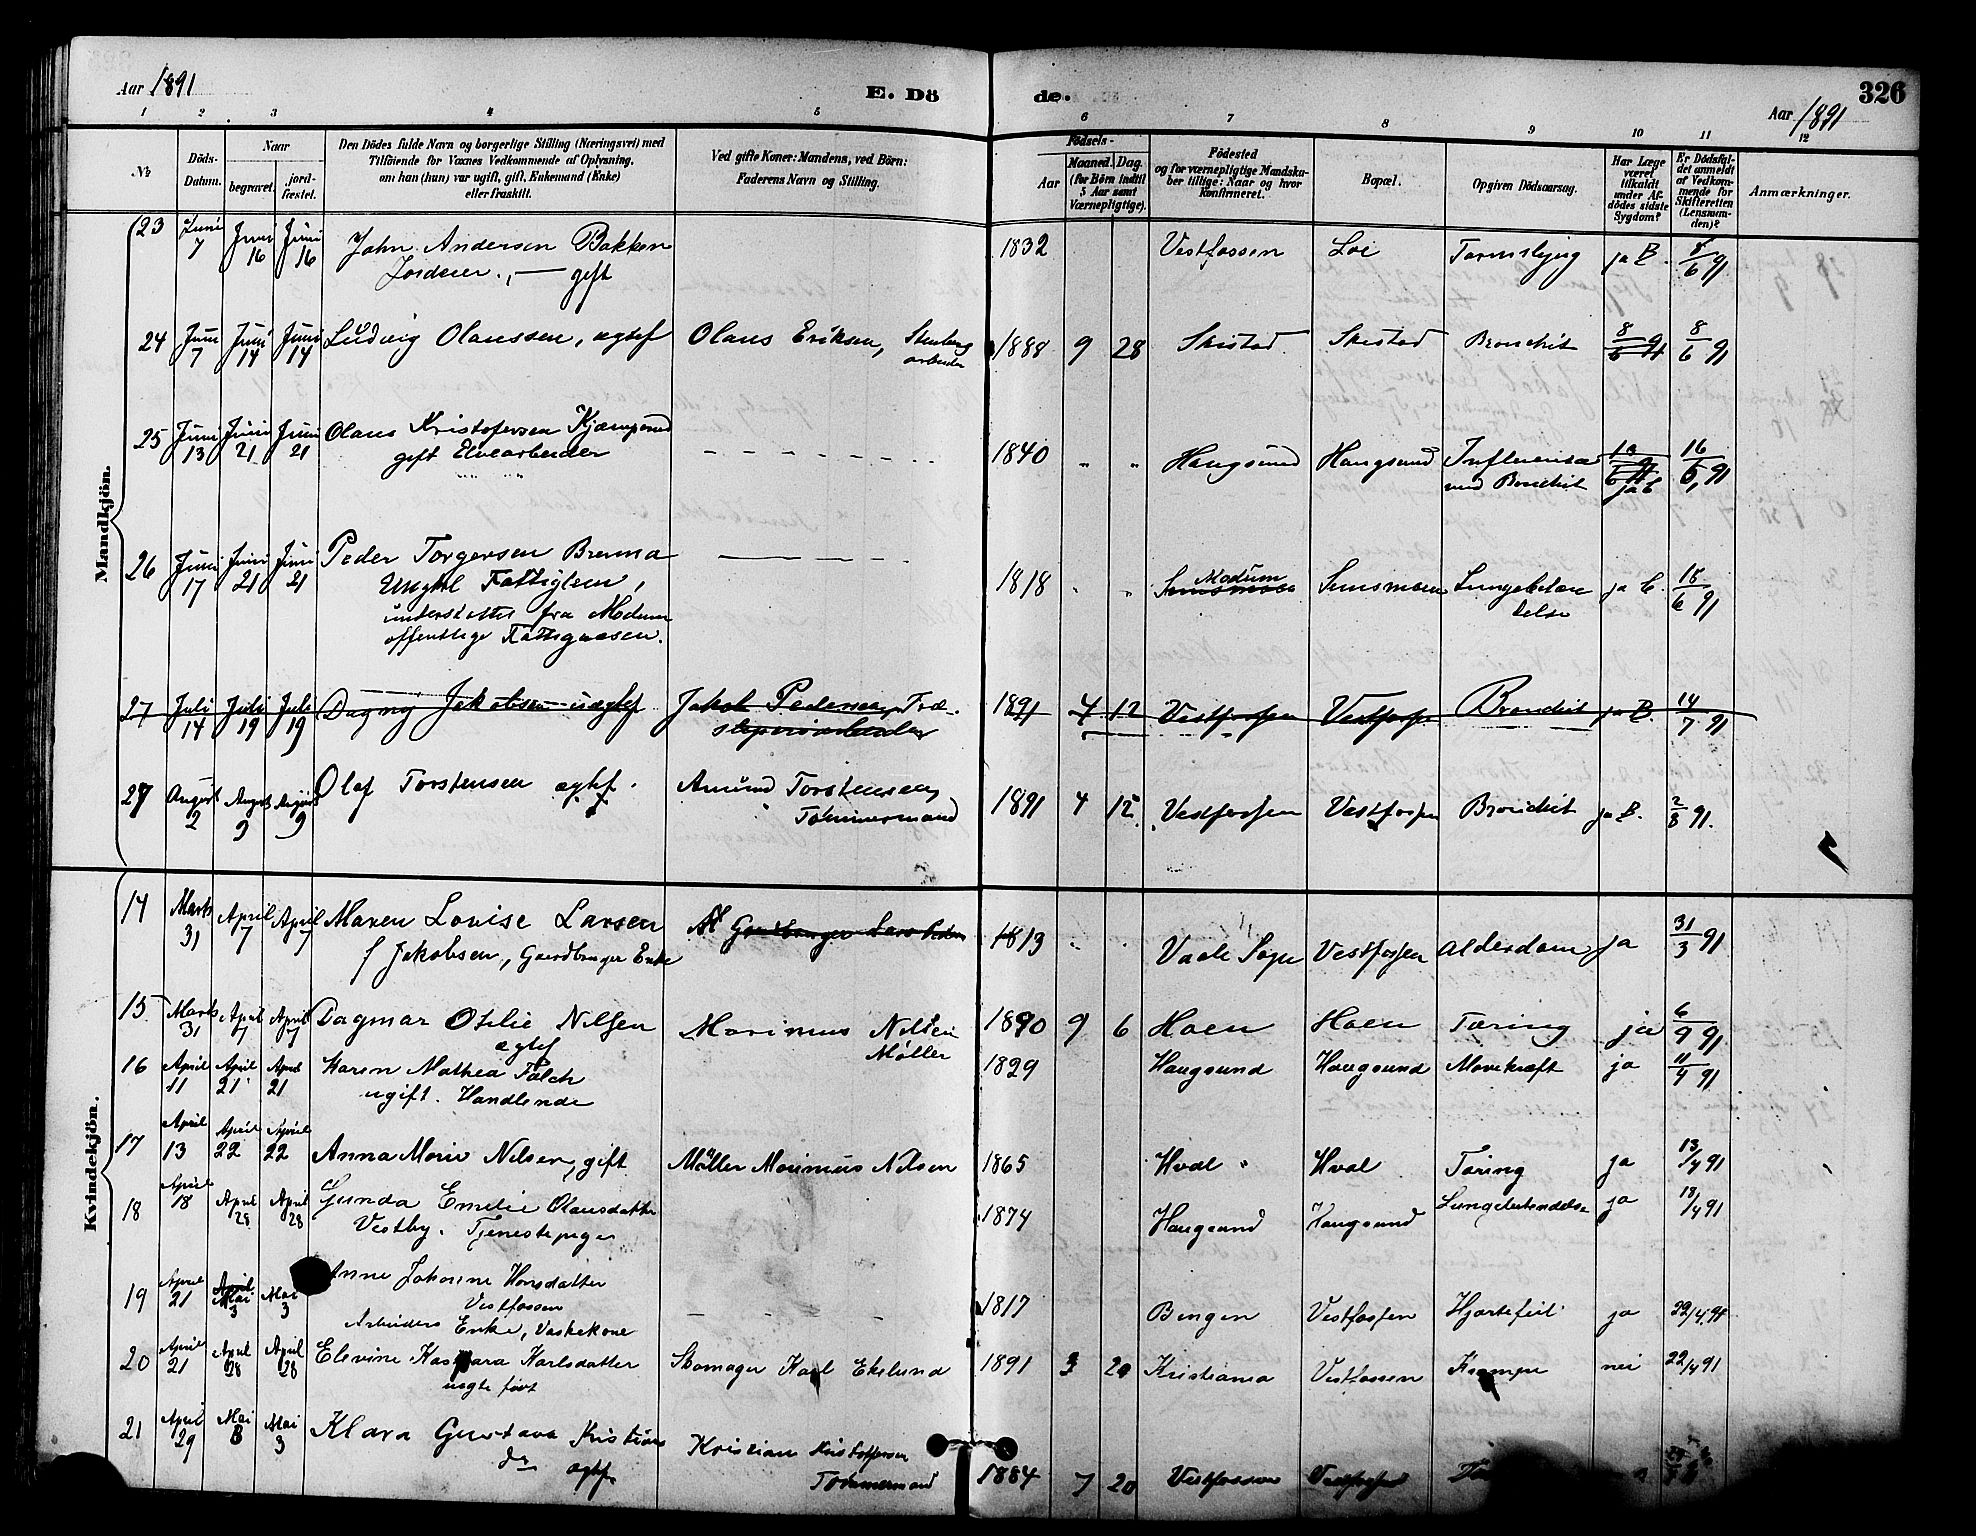 Aar 1891
E. Dö de.
326
Aar 1891
1 2 3 4 5 6 7 8 9 10 11 12
№
Döds-
Datum.
Naar
begravet.
jord-
fæstet.
Den Dödes fulde Navn og borgerlige Stilling (Næringsvei) med
Tilföiende for Voxnes Vedkommende af Oplysning,
om han (hun) var ugift, gift, Enkemand (Enke)
eller fraskilt.
Ved gifte Koner: Mandens, ved Börn:
Faderens Navn og Stilling.
Födsels-
Aar
Maaned. Dag.
(for Börn indtil
5 Aar samt
Værnepligtige).
Födested
og for værnepligtige Mandska-
ber tillige: Naar og hvor
Konfirmeret.
Bopæl.
Opgiven Dödsaarsag.
Har Læge
været
tilkaldt
under Af-
dödes sidste
Sygdom?
Er Dödsfal-
det anmeldt
af Vedkom-
mende for
Skifteretten
(Lensman-
den)?
Anmærkninger.
Mandkjön.
23 Juni 7 Juni 16 Juni 16 John Andersen Bakken 1832 Vestfossen Loe ja B. 8/6 91
gift
24 Juni 7 Juni 14 Juni 14 Ludvig Olaussen, ægtef Olaus Eriksen, 1888 9 28 Skistad Skistad Bronchit 8/6 91 8/6 91
arbeider
25 Juni 13 Juni 21 Juni 21 Olaus Kristofersen Kjæmperud
gift Elvearbeider 1840 " " Haugsund Haugsund Influensa 16/6 91
med Bronchit
26 Juni 17 Juni 21 Juni 21 Peder Torgersen Brenna 1818 " " Modum ja C. 18/6 91
Ungkl Fattiglem, Lungebetæn
delse
understøttet fra Modum
offentlige Fattigvæsen.
27 Juli 14 Juli 19 Juli 19 Dagny Jakobsen uægtef Jakob Pedersen, Træ- 1891 4 12 Vestfossen Vestfossen Bronchit ja B. 14/7 91
sliperiarbeider
27 August 2 August 9 August 9 Olaf Torstensen ægtef. Amund Torstensen, 1891 4 12 Vestfossen Vestfossen Bronchit ja B. 2/8 91.
Tømmermand
Kvindekjön.
14 Marts 31 April 7 April 7 Maren Lovise Larsen Gaardbruger Lars 1813 " " Vaale Sogn Vestfossen Alderdom ja 31/3 91
f Jakobsen, Gaardbruger Enke
15 Marts 31 April 7 April 7 Dagmar Otilie Nilsen Marinus Nilsen 1890 9 6 Hoen Hoen Tæring ja 6/4 91
ægtef Møller
16 April 11 April 21 April 21 Karen Mathea Falch 1829 Haugsund Haugsund Mavekræft ja 11/4 91
ugift. Handlende
17 April 13 April 22 April 22 Anna Marie Nilsen, gift Møller Marinus Nilsen 1865 Hval Hval Tæring ja 13/4 91
18 April 18 April 28 April 28 Gunda Emelie Olausdatter 1874 Haugsund Haugsund Lungebetændelse ja 18/4 91
Vestby. Tjenestepige
19 April 21 April Mai 3 Mai 3 Anne Johanne Hansdatter 1817 Bingen Vestfossen Hjertefeil ja 22/4 91
Vestfossen
Arbeiders Enke, Vaskekone
20 April 21 April 28 April 28 Elevine Kaspara Karlsdatter Skomager Karl Ekelund 1891 3 20 Kristiania Vestfossen Krampe nei 22/4 91
uægte født
21 April 29 Mai 3 Mai 3 Klara Gustava Kristians Kristian Kristoffersen 1884 7 20 Vestfossen Vestfossen
dr ægtef. Tømmermand